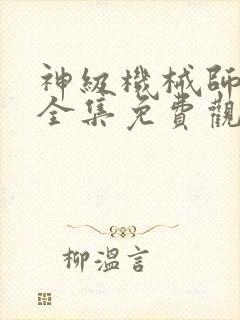 神級機械師
全集免費觀
柳溫言